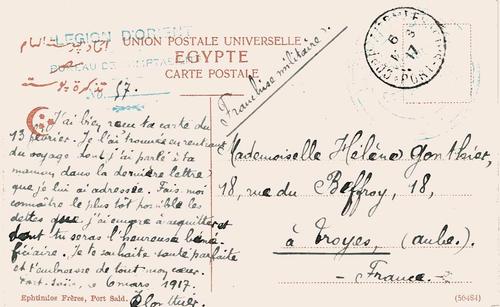 LEGION D'ORIENT
UNION POSTALE UNIVERSELLE
EGYPTE
CARTE POSTALE
Franchise militaire.
J'ai bien reçu ta carte du
13 février. Je l'ai trouvée en rentrant
du voyage dont j'ai parlé à ta
maman dans la dernière lettre
que je lui ai adressée. Fais-moi
connaître le plus tôt possible les
dettes que j'ai encore à acquitter et
dont tu seras l'heureuse béné-
ficiaire. Je te souhaite santé parfaite
et t'embrasse de tout mon cœur.
Port-Saïd, le 6 mars 1917.
Mademoiselle Hélène Gonthier,
18, rue du Beffroy, 18,
à Troyes, (Aube).
- France -
Ephtimios Frères, Port Said.
(56484)